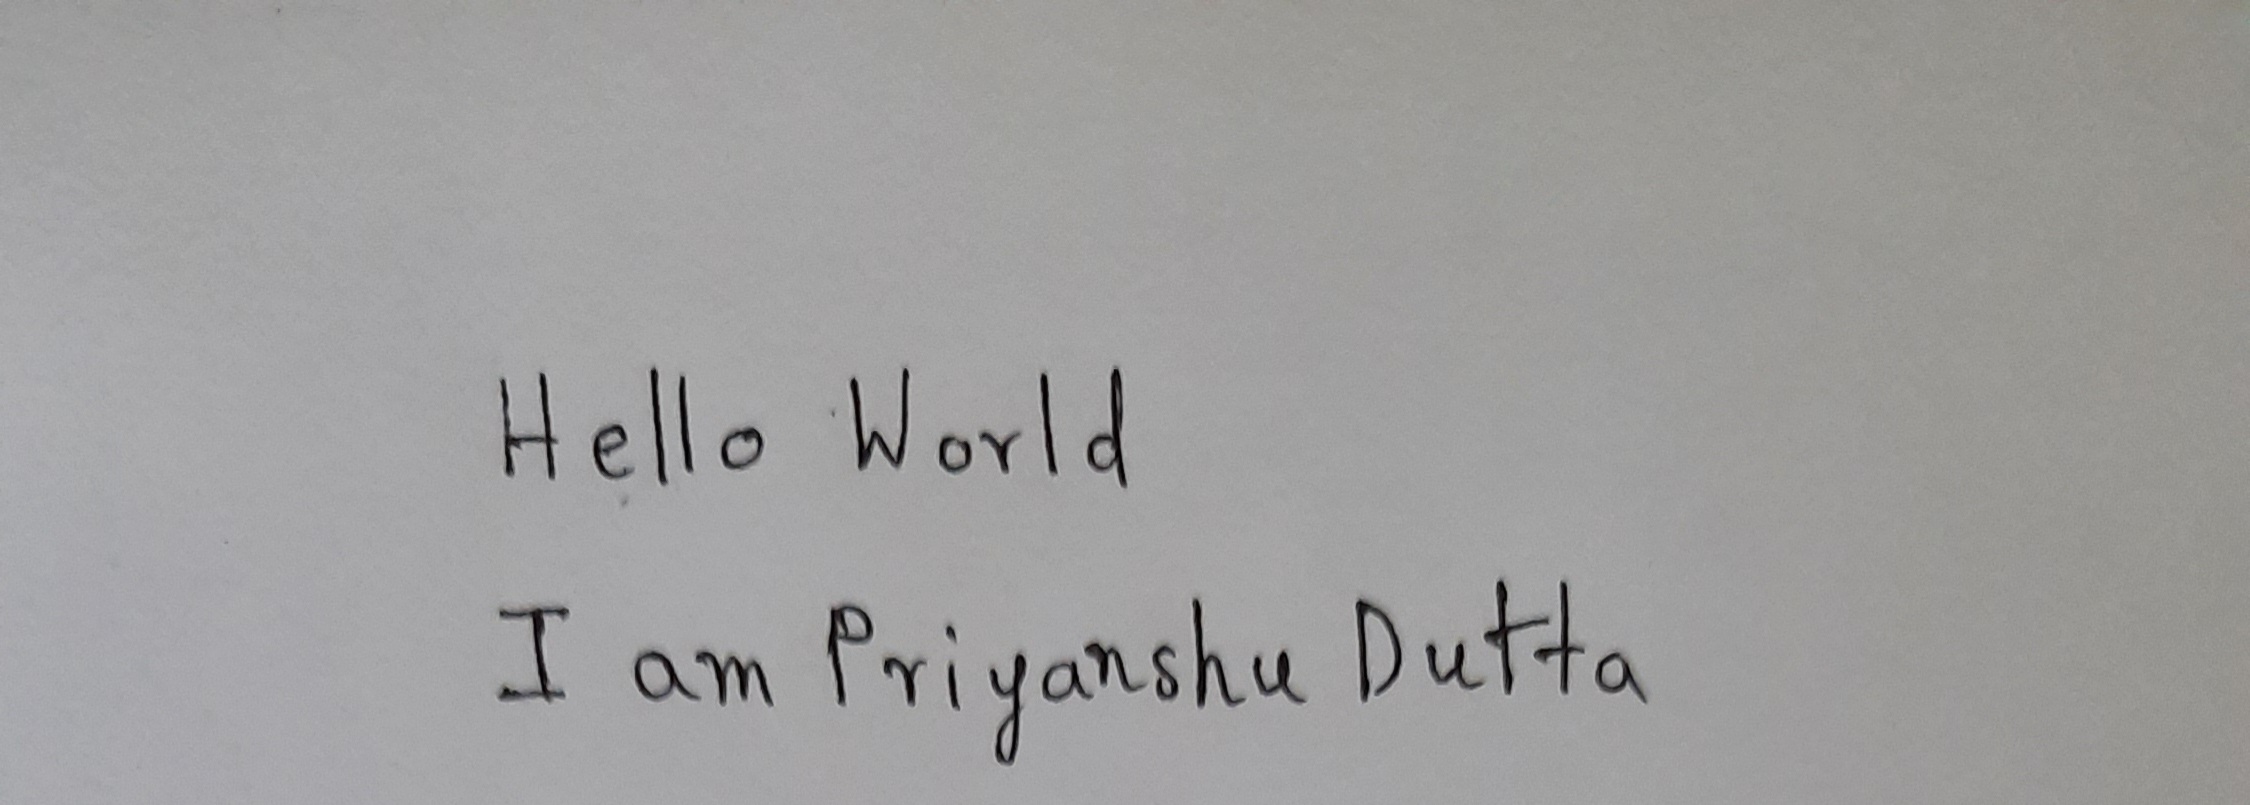 Hello World
I am Priyanshu Dutta